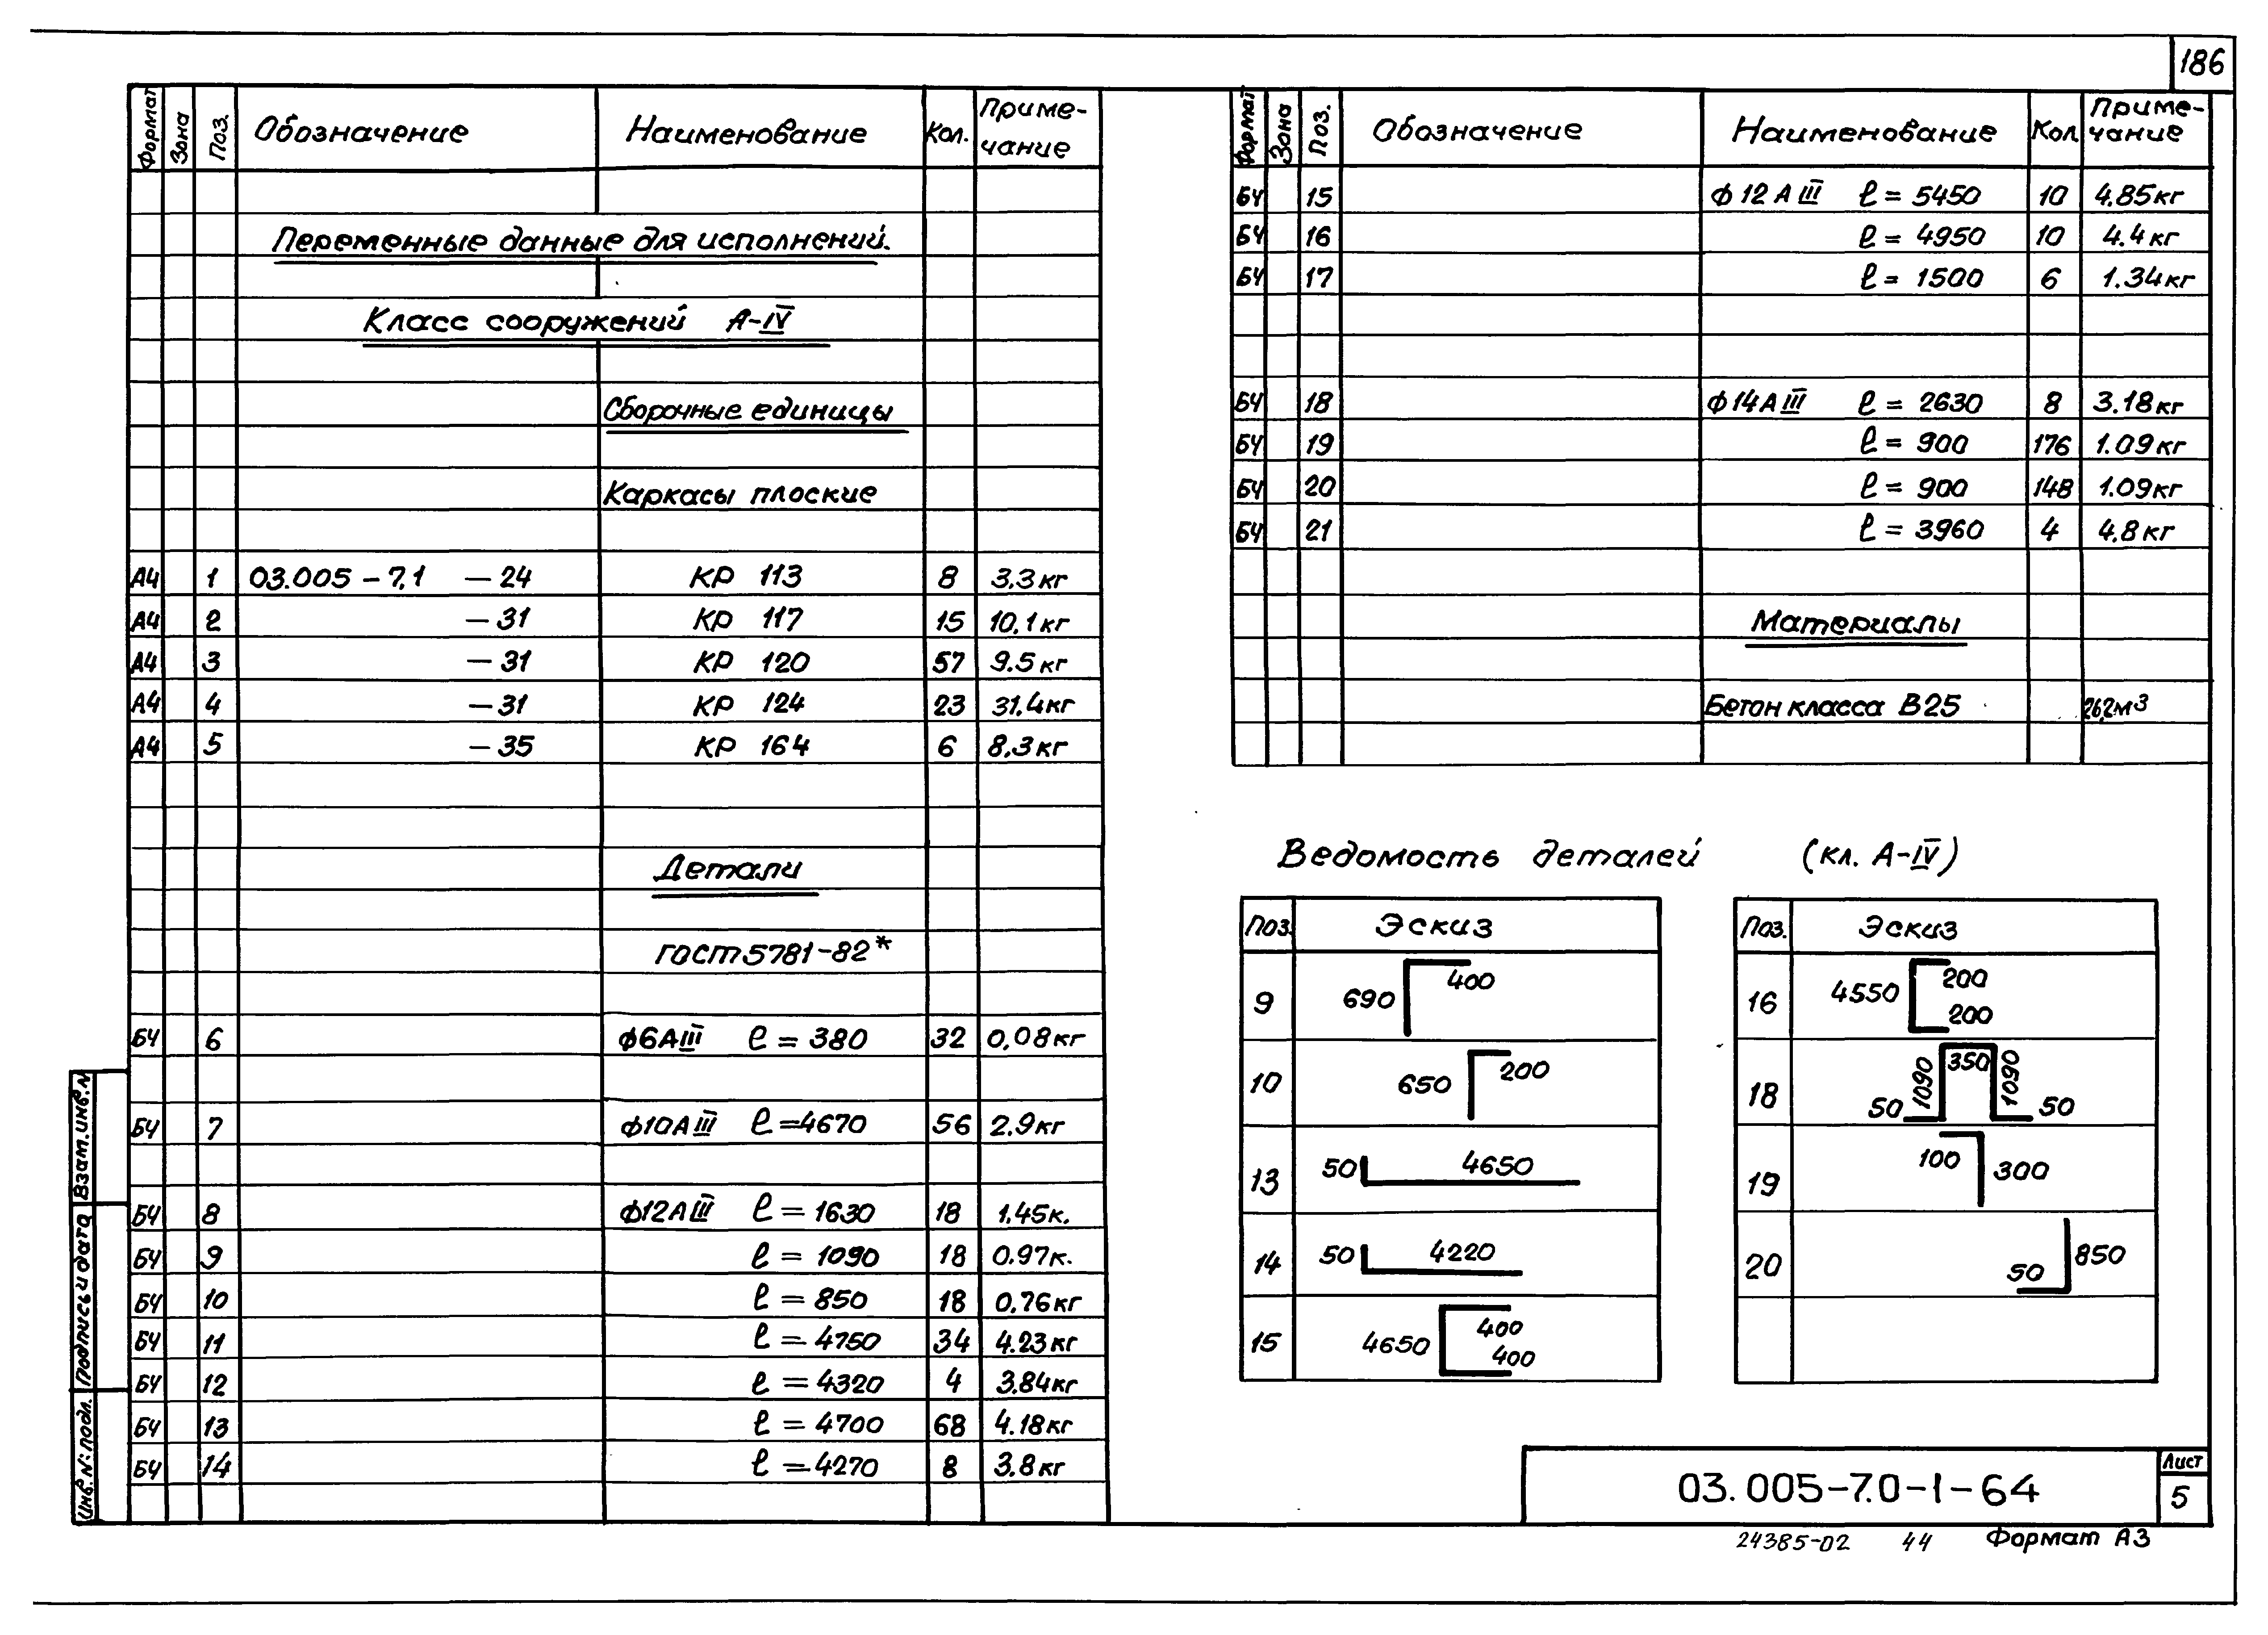 186
Формат Зона Поз. Обозначение Наименование Кол. Приме-
чание
Переменные данные для исполнений.
Класс сооружений А-IV
Сборочные единицы
Каркасы плоские
А4 1 03.005-7.1 -24 КР 113 8 3.3кг
А4 2 -31 КР 117 15 10.1кг
А4 3 -31 КР 120 57 9.5кг
А4 4 -31 КР 124 23 31.4кг
А4 5 -35 КР 164 6 8.3кг
Детали
ГОСТ5781-82*
БЧ 6 ф6АIII ℓ=380 32 0,08кг
БЧ 7 ф10АIII ℓ=4670 56 2.9кг
БЧ 8 ф12АIII ℓ=1630 18 1.45к.
БЧ 9 ℓ=1090 18 0.97к.
БЧ 10 ℓ=850 18 0.76кг
БЧ 11 ℓ=4750 34 4.23кг
БЧ 12 ℓ=4320 4 3.84кг
БЧ 13 ℓ=4700 68 4.18кг
БЧ 14 ℓ=4270 8 3.8кг
Формат Зона Поз. Обозначение Наименование Кол. Приме-
чание
БЧ 15 ф12АIII ℓ=5450 10 4.85кг
БЧ 16 ℓ=4950 10 4.4кг
БЧ 17 ℓ=1500 6 1.34кг
БЧ 18 ф14АIII ℓ=2630 8 3.18кг
БЧ 19 ℓ=900 176 1.09кг
БЧ 20 ℓ=900 148 1.09кг
БЧ 21 ℓ=3960 4 4.8кг
Материалы
Бетон класса В25 26,2м3
Ведомость деталей (кл. А-IV)
Поз. Эскиз
9 690 400
10 650 200
13 50 4650
14 50 4220
15 4650 400 400
Поз. Эскиз
16 4550 200 200
18 50 1090 350 1090 50
19 100 300
20 50 850
Взам.инв.N
Подпись и дата
Инв.N:подл.
03.005-7.0-1-64
Лист
5
24385-02 44 Формат А3